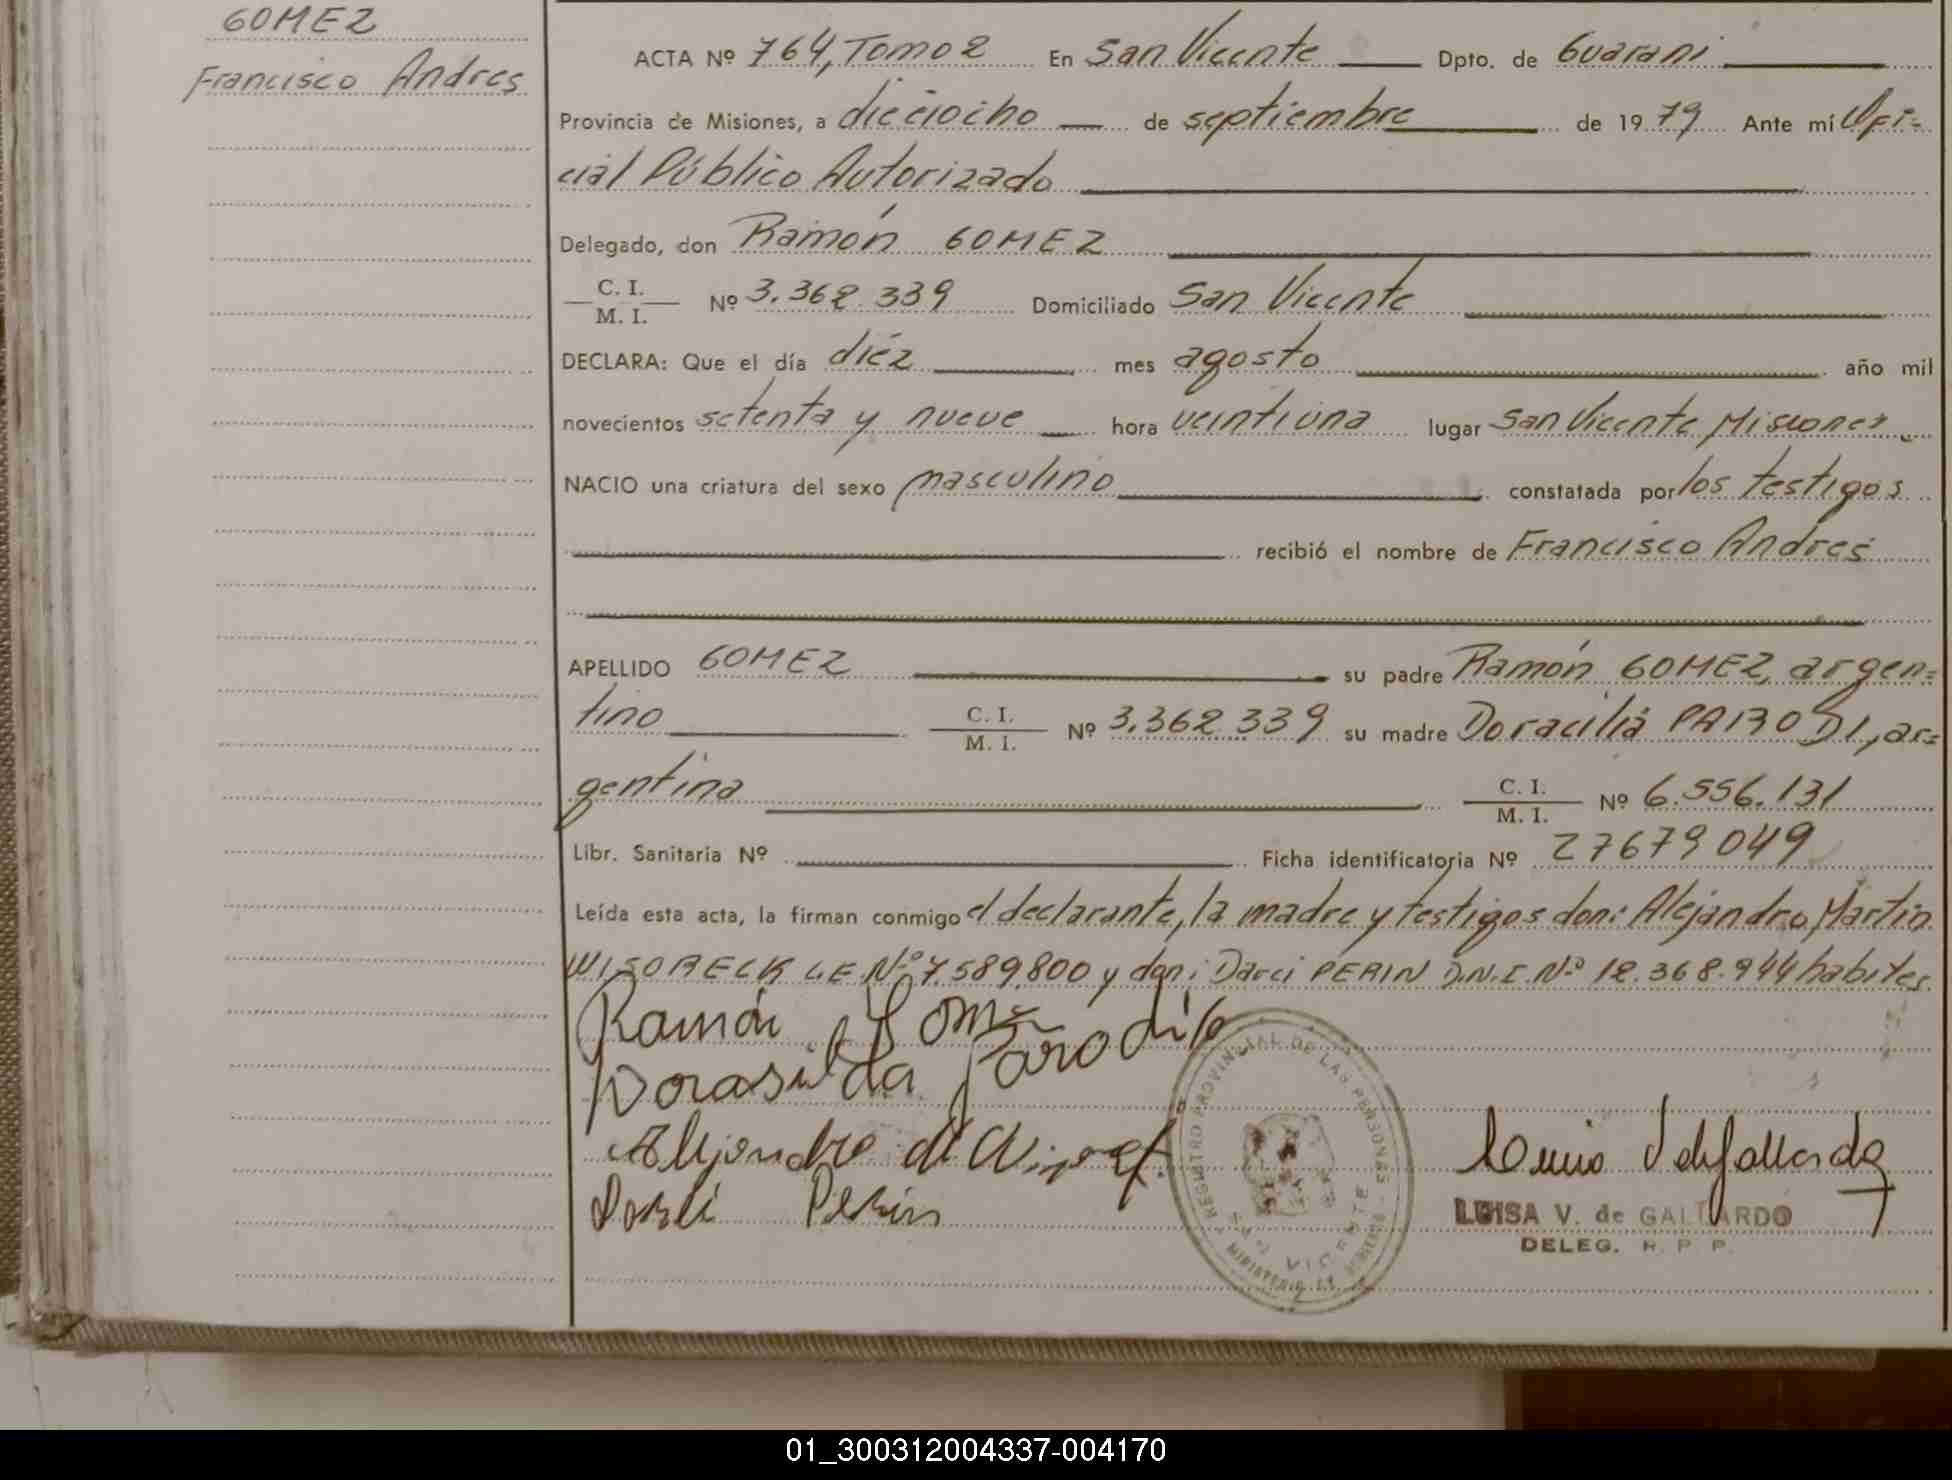 GOMEZ
Francisco Andres
ACTA Nº 764, Tomo 2 En San Vicente Dpto. de Guarani
Provincia de Misiones, a dieciocho de septiembre de 1979 Ante mí Ofi=
cial Público Autorizado
Delegado, don Ramón GOMEZ
C. I.
M. I. Nº 3.362.339 Domiciliado San Vicente
DECLARA: Que el día diéz mes agosto año mil
novecientos setenta y nueve hora veintiuna lugar San Vicente Misiones
NACIO una criatura del sexo masculino constatada por los testigos
recibió el nombre de Francisco Andres
APELLIDO GOMEZ su padre Ramón GOMEZ, argen=
tino C. I.
M. I. Nº 3.362.339 su madre Doracilia PARODI, ar=
gentina C. I.
M. I. Nº 6.556.131
Libr. Sanitaria Nº Ficha identificatoria Nº 27679049
Leída esta acta, la firman conmigo el declarante, la madre y testigos don: Alejandro Martin
WISORECK L.E. Nº 7.589.800 y don: Darci PERIN D.N.I. Nº 12.368.944 habiles
Ramón Gomez
Dorasilda Parodi
Alejandro
Perin
REGISTRO PROVINCIAL DE LAS PERSONAS
SAN VICENTE
MINISTERIO DE GOBIERNO
LUISA V. de GALLARDO
DELEG. R. P. P.
01_300312004337-004170